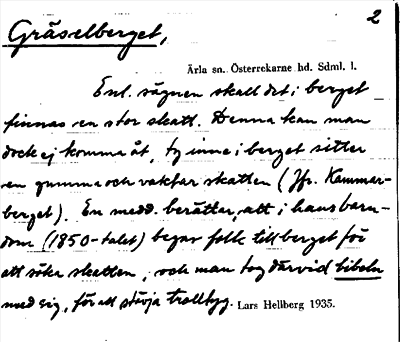 2
Gräselberget,
Ärla sn. Österrekarne hd. Sdml. l.
Enl. sägnen skall det i berget
finnas en stor skatt. Denna kan man
dock ej komma åt, ty inne i berget sitter
en gumma och vaktar skatten (Jfr. Kammar-
berget). En medd. berättar, att i hans barn-
dom (1850-talet) begav folk till berget för
att söka skatten, och man tog därvid bibeln
med sig, för att stävja trolltyg. Lars Hellberg 1935.